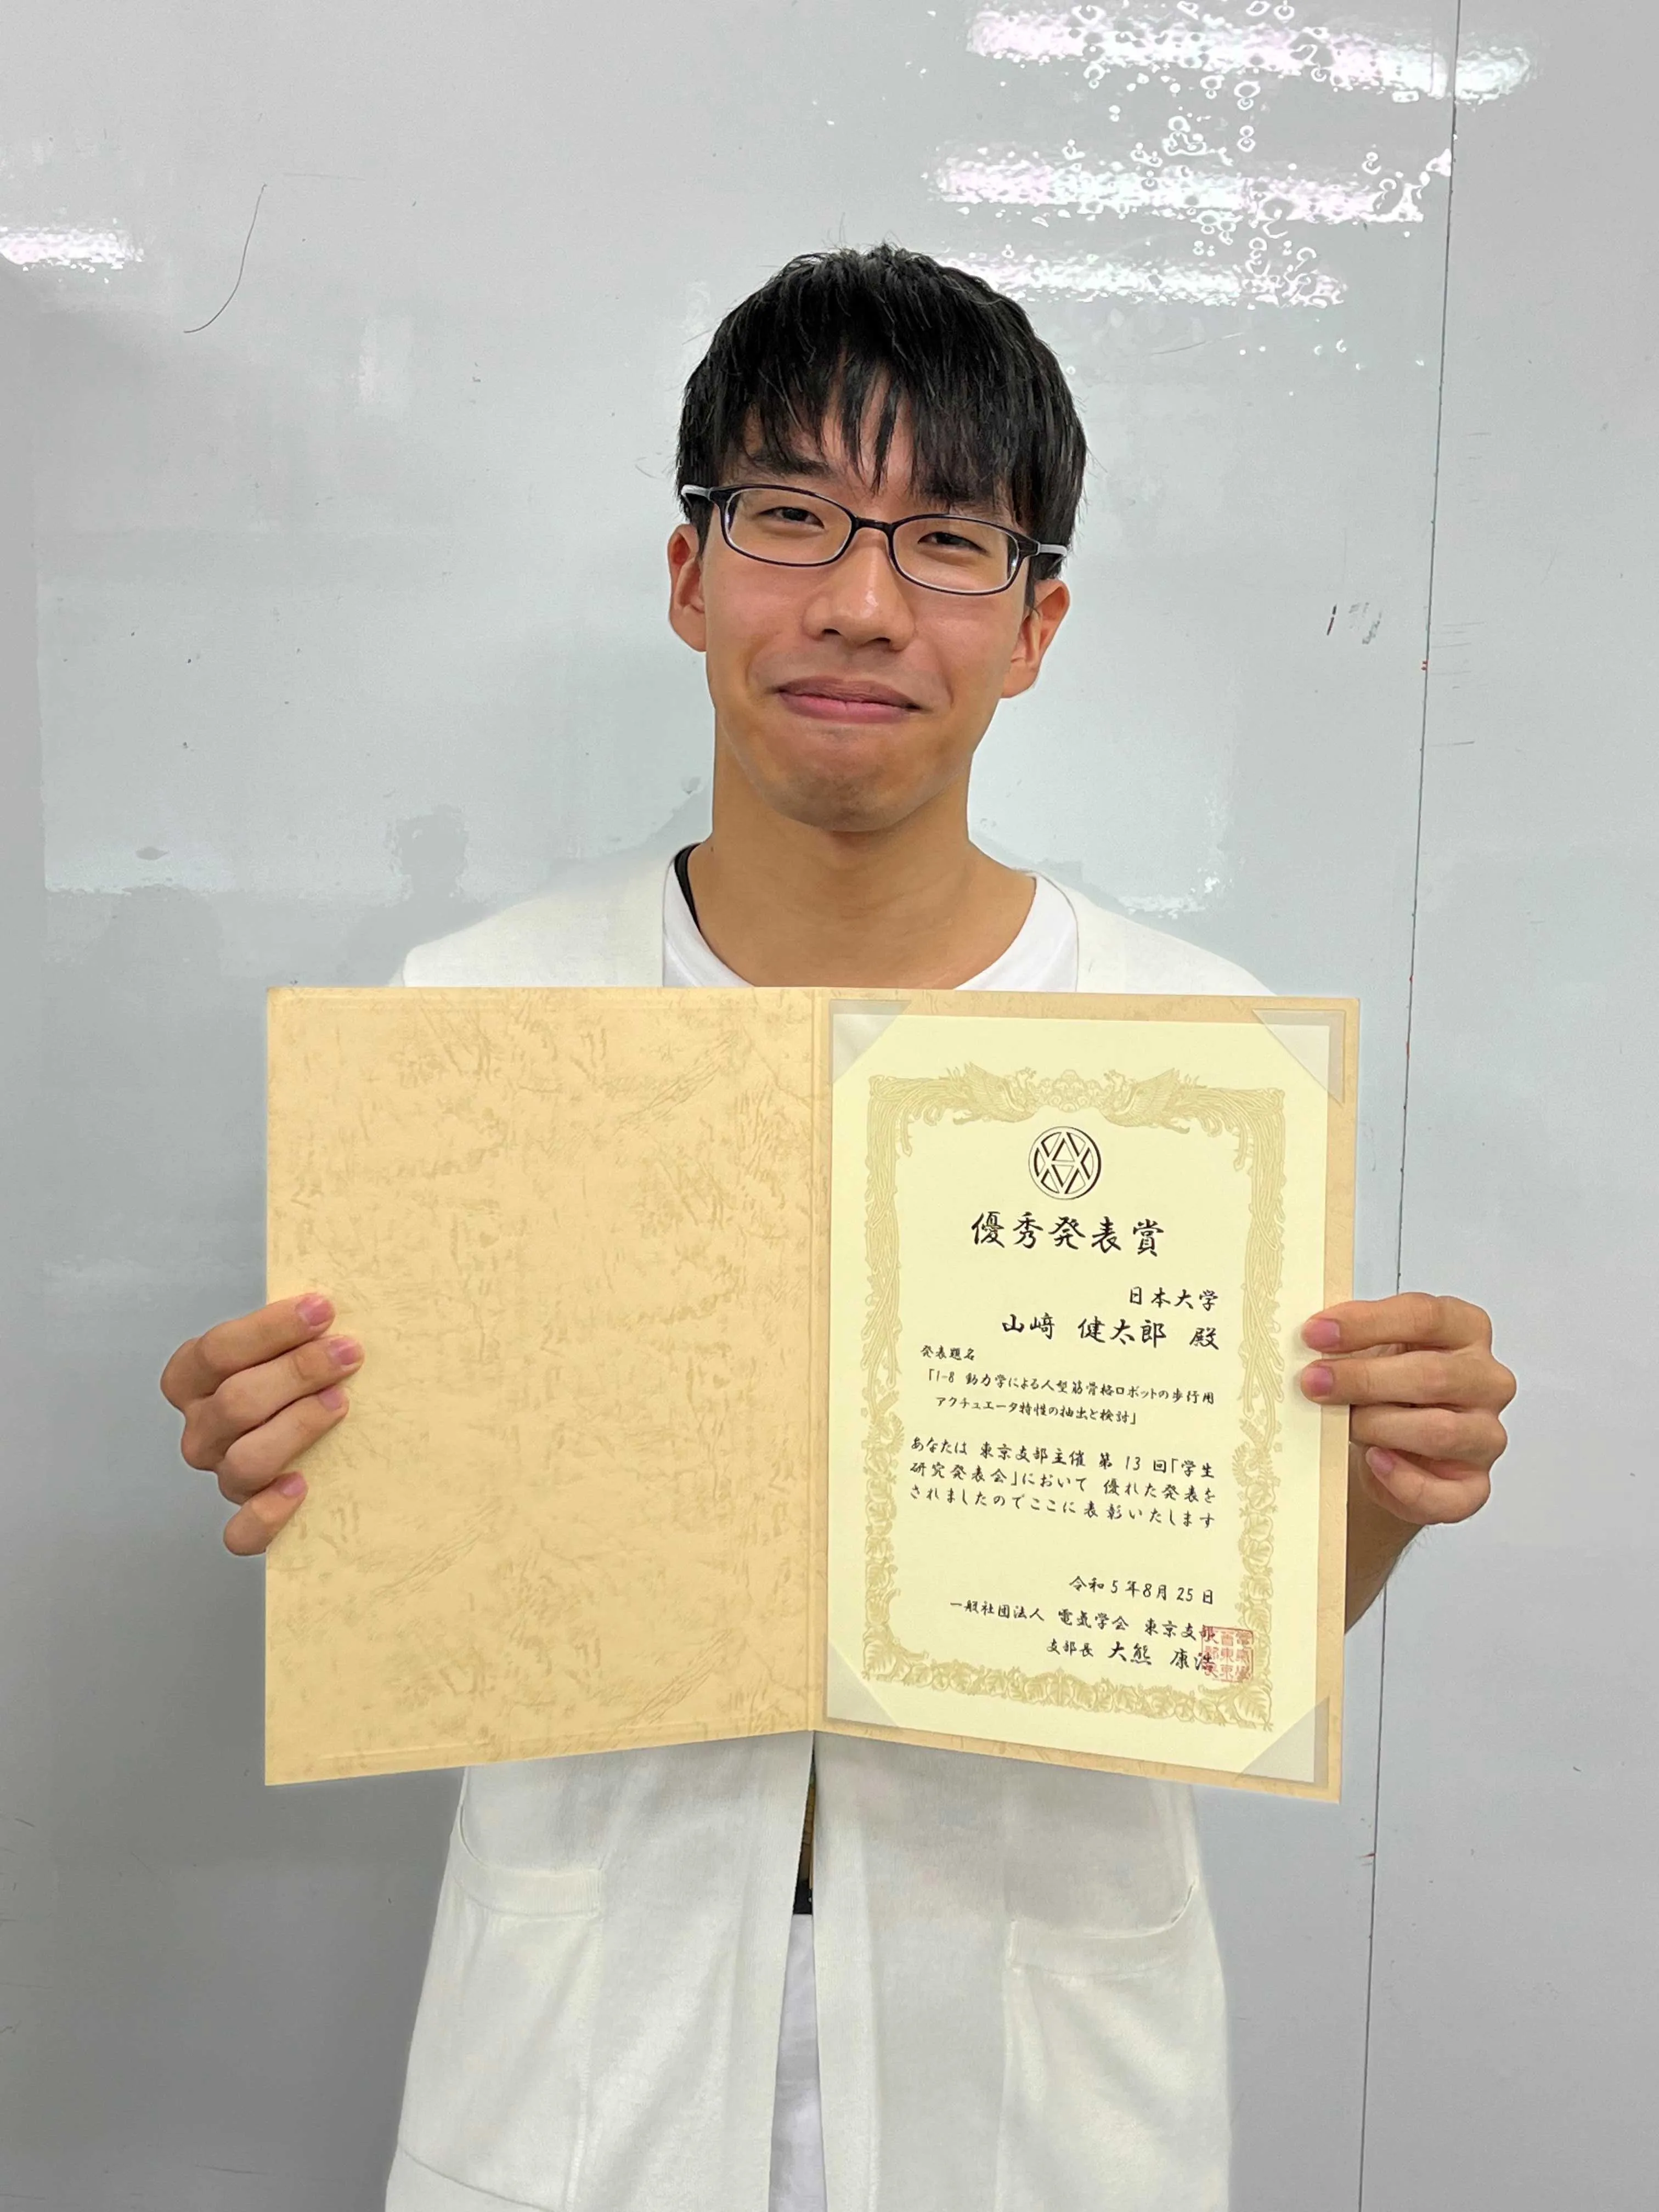 優秀発表賞
日本大学
山﨑 健太郎 殿
発表題名
「1-8 動力学による人型筋骨格ロボットの歩行用
アクチュエータ特性の抽出と検討」
あなたは 東京支部主催 第 13 回「学生
研究発表会」において 優れた発表を
されましたのでここに表彰いたします
令和 5 年 8 月 25 日
一般社団法人 電気学会 東京支部
支部長 大熊 康浩